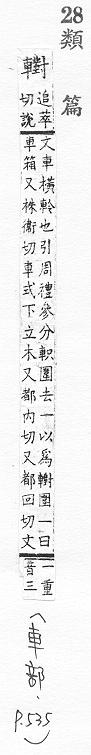 28
類篇
轛
追萃切說文車橫軨也引周禮參分軹圍去一以爲轛圍一曰車箱又株衞切車式下立木又都內切又都回切文一重音三
(車部、p.535)